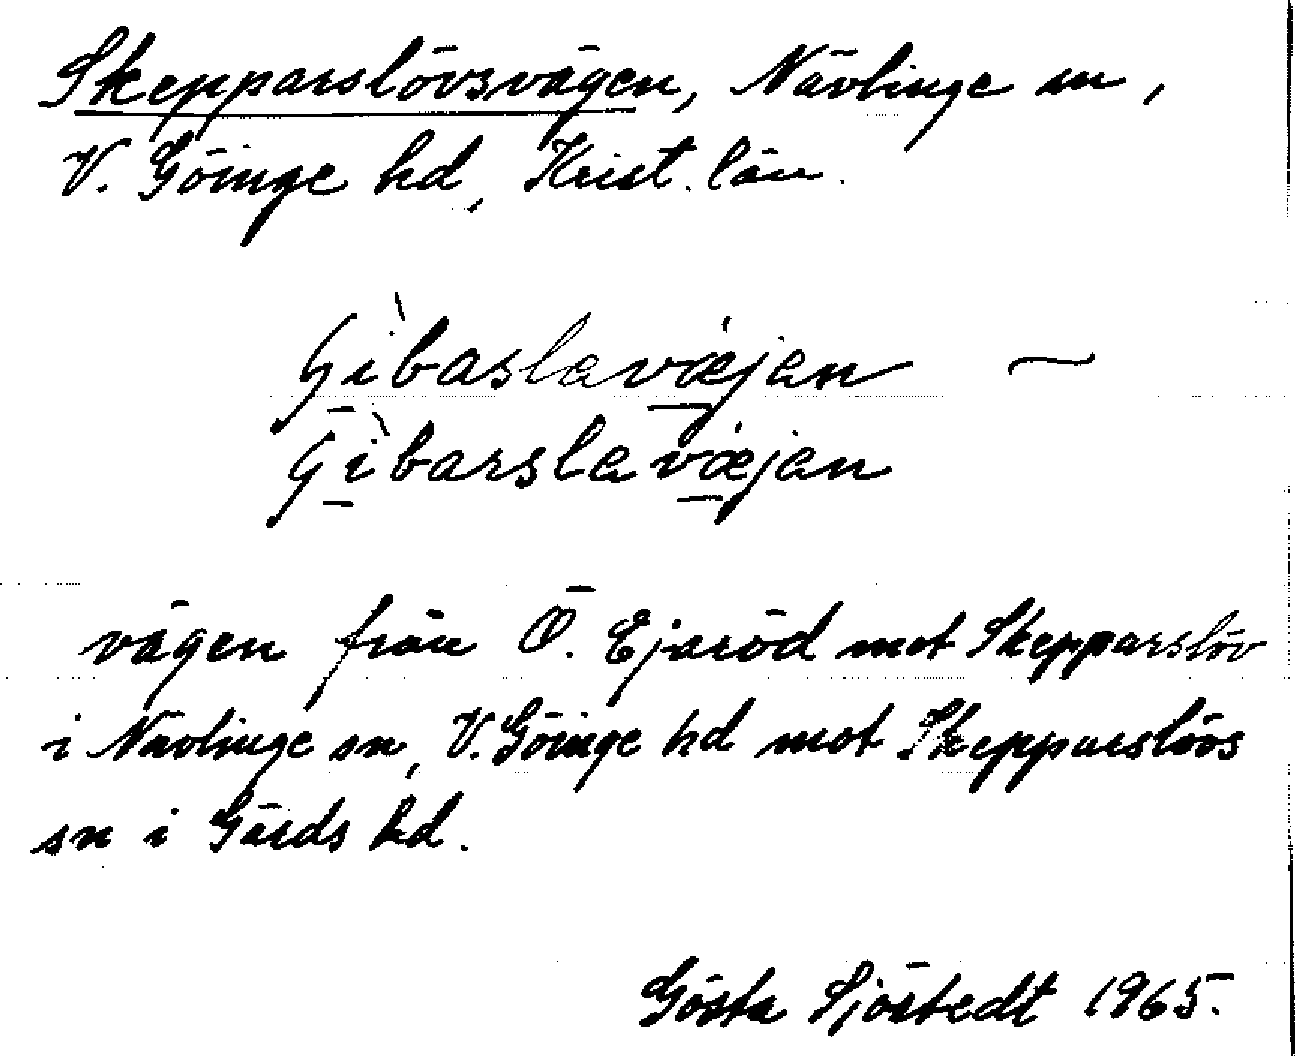 Skepparslövsvägen, Nävlinge sn,
V. Göinge hd, Krist. län.
ʃìbaslavæjan ~
ʃìbarslavæjan
vägen från Ö. Ejaröd mot Skepparslöv
i Nävlinge sn, V. Göinge hd mot Skepparslövs
sn i Gärds hd.
Gösta Sjöstedt 1965.